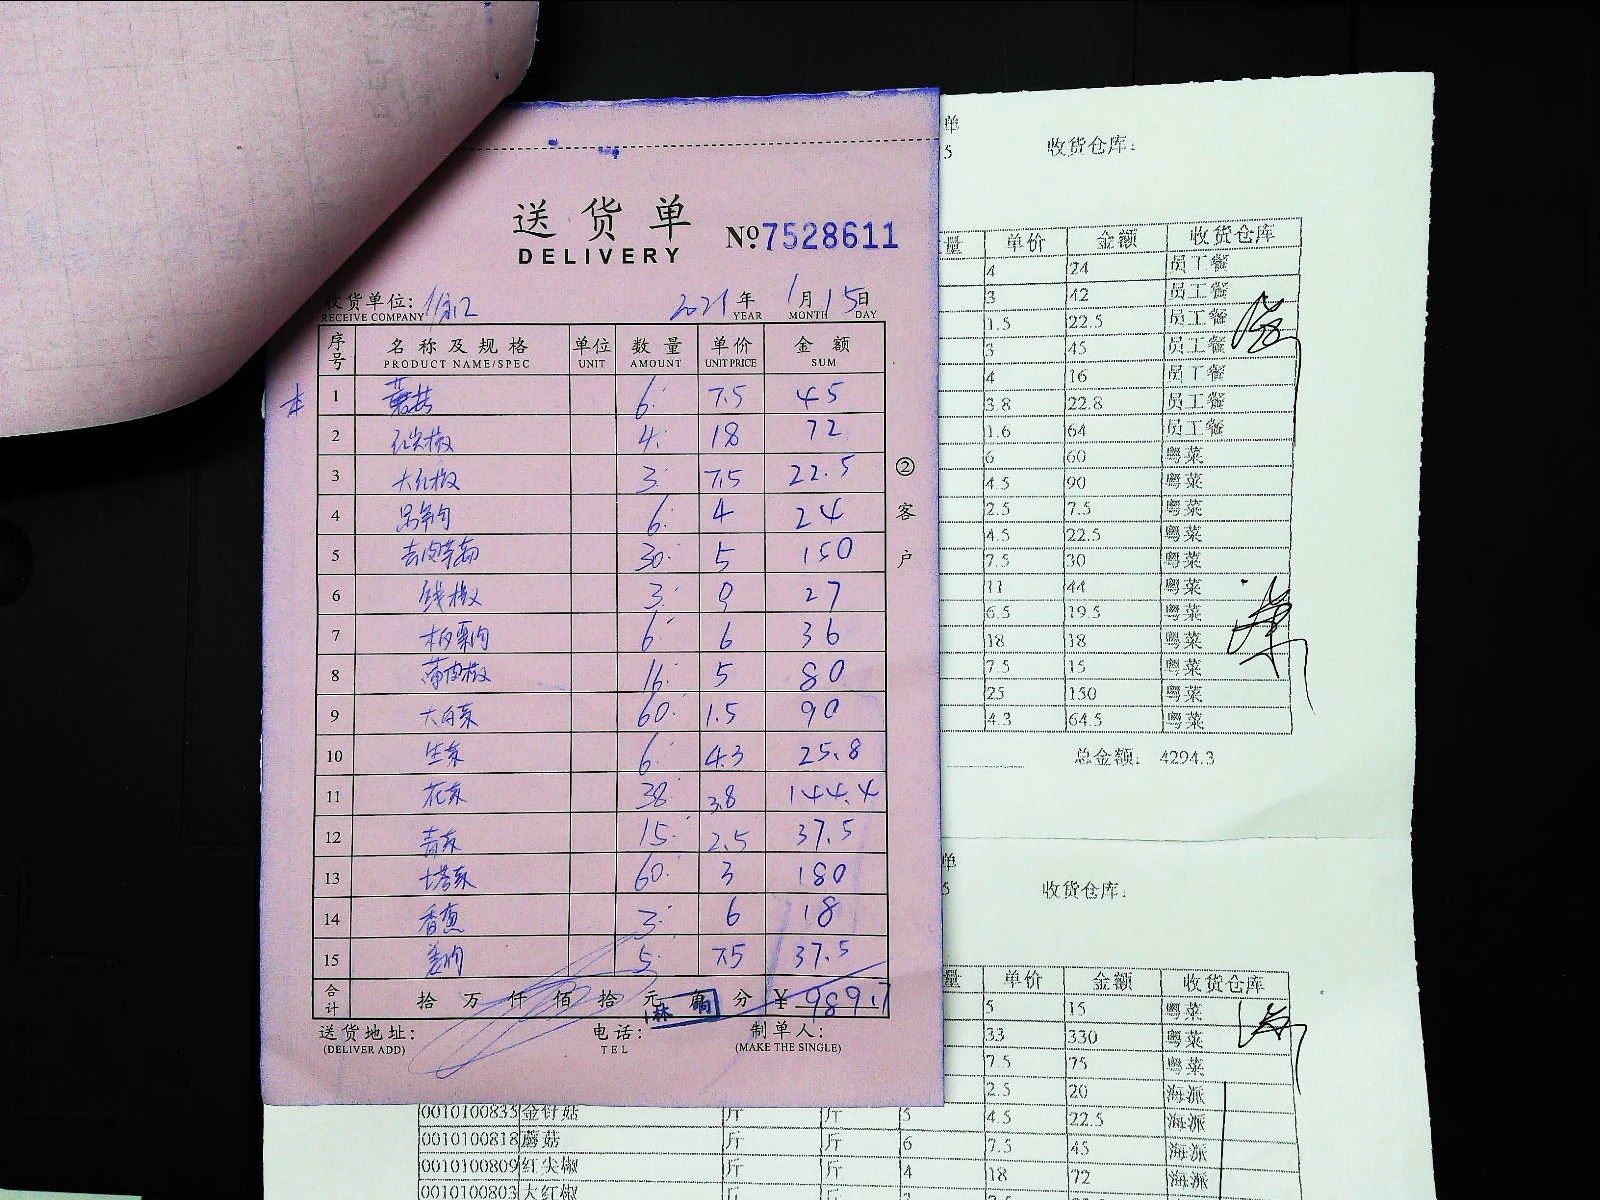 送货单
DELIVERY
№7528611
收货单位:
RECEIVE COMPANY
2021年1月15日
YEAR MONTH DAY
序号 名称及规格 单位 数量 单价 金额
PRODUCT NAME/SPEC UNIT AMOUNT UNIT PRICE SUM
1 蘑菇 6 7.5 45
2 红尖椒 4 18 72
3 大红椒 3 7.5 22.5
4 6 4 24
5 30 5 150
6 线椒 3 9 27
7 6 6 36
8 薄皮椒 16 5 80
9 大白菜 60 1.5 90
10 生菜 6 4.3 25.8
11 花菜 38 3.8 144.4
12 青菜 15 2.5 37.5
13 塔菜 60 3 180
14 香葱 3 6 18
15 5 7.5 37.5
合计 拾 万 仟 佰 拾 元 角 分 ¥ 989.7
送货地址: 电话: 制单人:
(DELIVER ADD) TEL (MAKE THE SINGLE)
②客户
单
5 收货仓库:
量 单价 金额 收货仓库
4 24 员工餐
3 42 员工餐
1.5 22.5 员工餐
3 45 员工餐
4 16 员工餐
3.8 22.8 员工餐
1.6 64 员工餐
6 60 粤菜
4.5 90 粤菜
2.5 7.5 粤菜
4.5 22.5 粤菜
7.5 30 粤菜
11 44 粤菜
6.5 19.5 粤菜
18 18 粤菜
7.5 15 粤菜
25 150 粤菜
4.3 64.5 粤菜
总金额: 4294.3
单
5 收货仓库:
量 单价 金额 收货仓库
5 15 粤菜
33 330 粤菜
7.5 75 粤菜
2.5 20 海派
0010100835 金针菇 斤 斤 5 4.5 22.5 海派
0010100818 蘑菇 斤 斤 6 7.5 45 海派
0010100809 红尖椒 斤 斤 4 18 72 海派
0010100803 大红椒